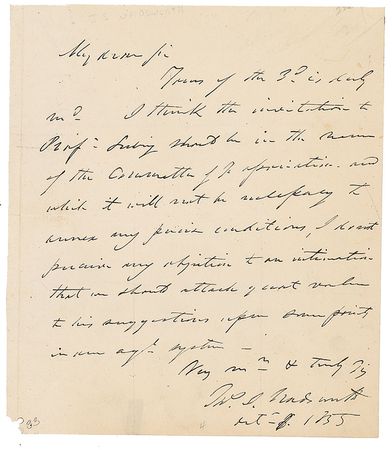 My dear Sir
Yours of the 3d is duly
rcd. I think the invitation to
Profr. Liebig should be in the name
of the Committee of the Association and
which it will not be necessary to
annex any precise conditions, I do not
perceive any objection to an intimation
that we should attach great value
to his suggestions upon some points
in our agl. system—
Very mh & truly Yr
Wadsworth
Oct 1855